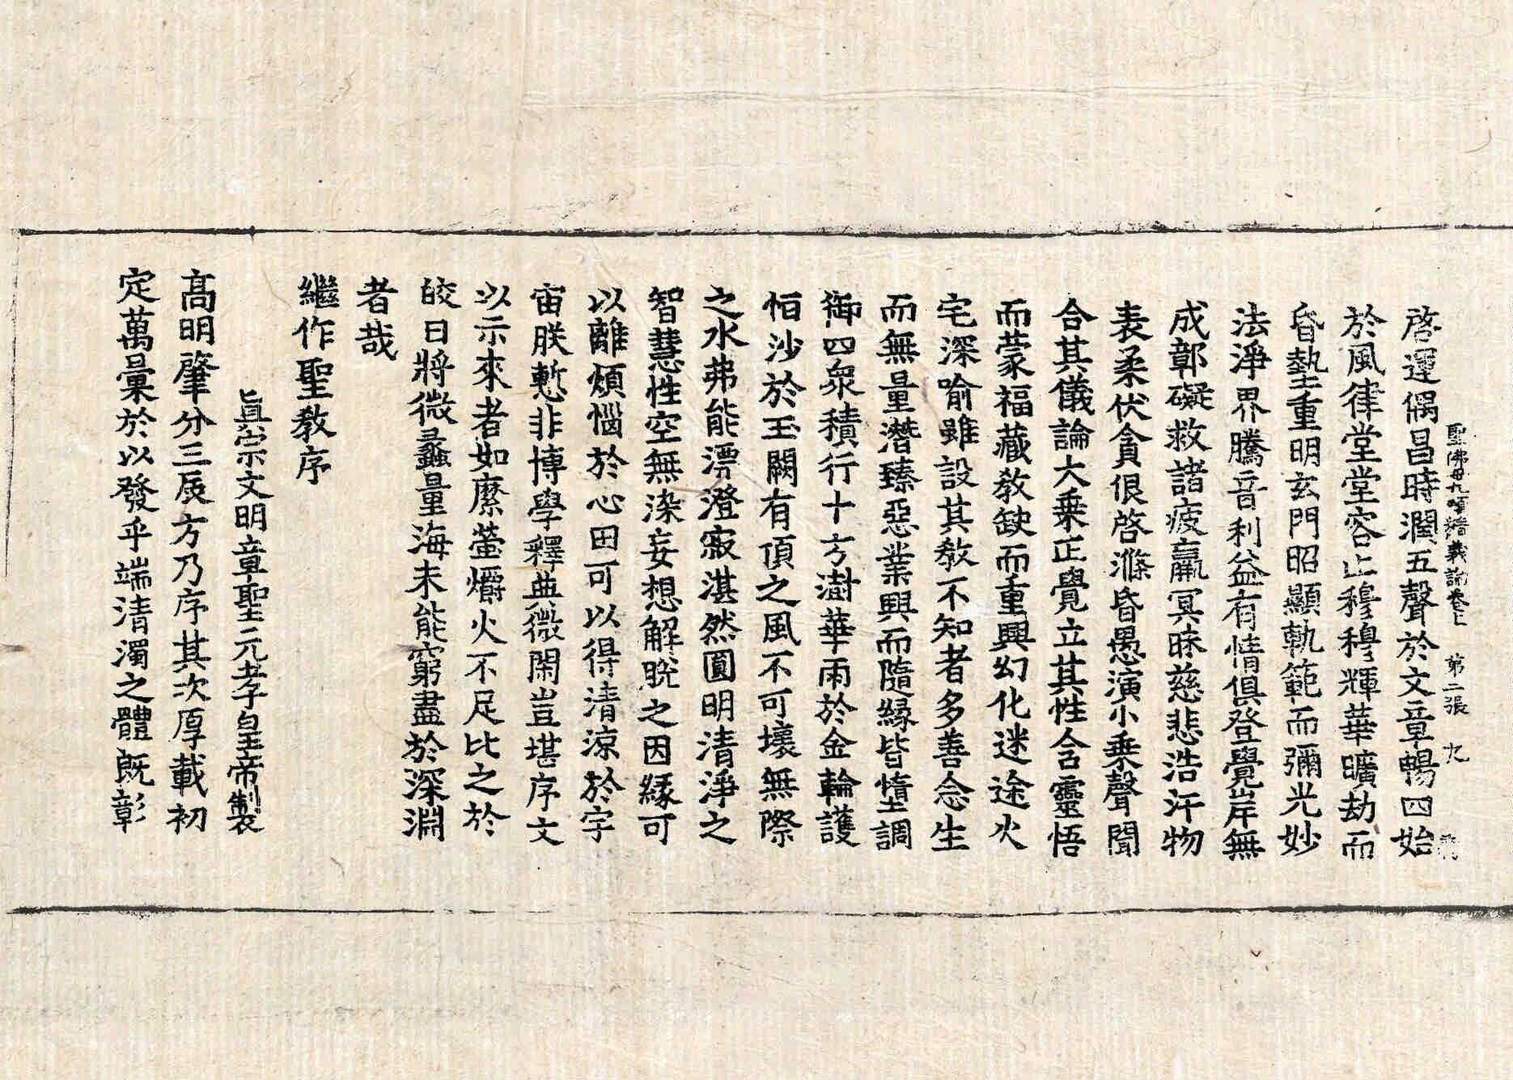 聖佛母九頌精義論卷上 第二張 九
啓運偶昌時潤五聲於文章暢四始
於風律堂堂容止穆穆輝華曠劫而
昏蟄重明玄門昭顯軌範而彌光妙
法淨界騰音利益有情俱登覺岸無
成鄣礙救諸疲羸冥昧慈悲浩汗物
表柔伏貪佷啓滌昏愚演小乗聲聞
合其儀論大乗正覺立其性含靈悟
而蒙福藏教缺而重興幻化迷途火
宅深喻雖設其教不知者多善念生
而無量潛臻惡業興而隨緣皆墮調
御四衆積行十方澍華雨於金輪護
恒沙於玉闕有頂之風不可壞無際
之水弗能漂澄寂湛然圓明清淨之
智慧性空無染妄想解脫之因縁可
以離煩惱於心田可以得清涼於宇
宙朕慙非博學釋典微閑豈堪序文
以示來者如縻螢爝火不足比之於
皎日將微蠡量海未能窮盡於深淵
者哉
繼作聖教序
眞宗文明章聖元孝皇帝製
高明肇分三辰方乃序其次厚載初
定萬彙於以發乎端清濁之體旣彰